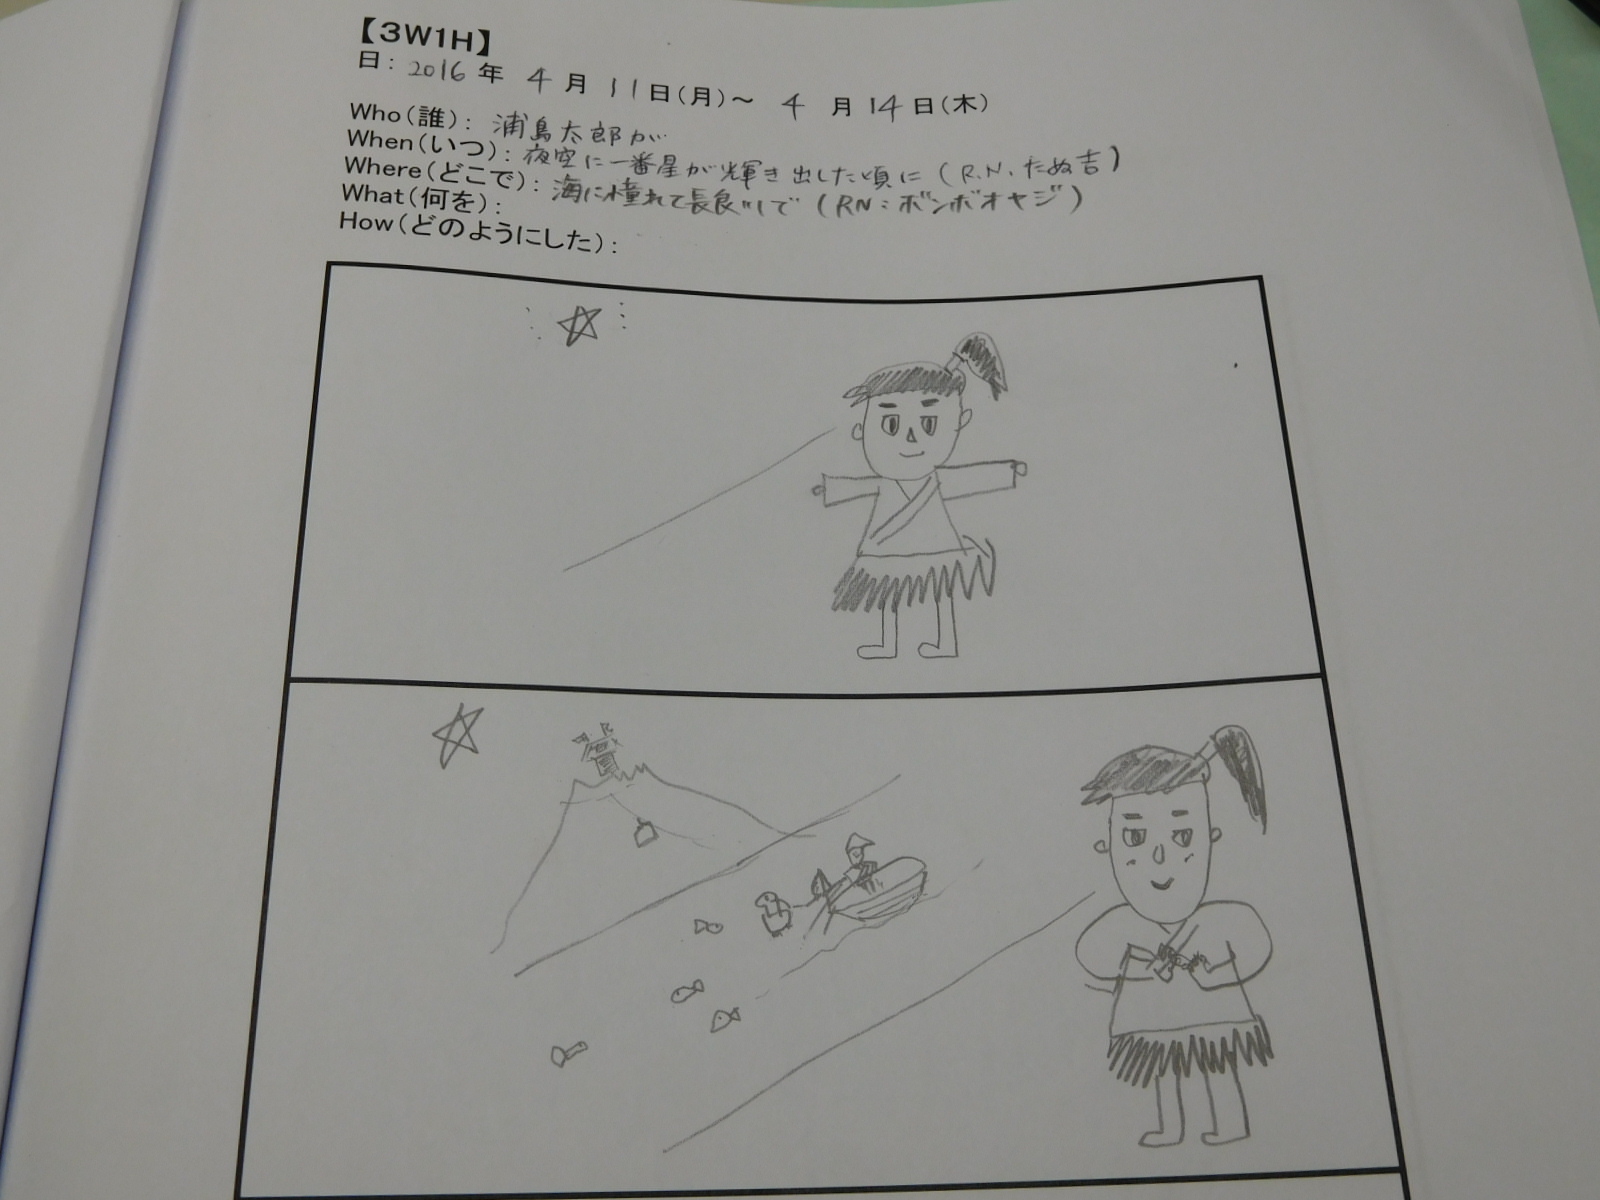 【3W1H】
日：2016年 4月 11日（月）～ 4月14日（木）
Who（誰）：浦島太郎が
When（いつ）：夜空に一番星が輝き出した頃に（R.N.たぬ吉）
Where（どこで）：海に憧れて長良川で（RN：ボンボオヤジ）
What（何を）：
How（どのようにした）：